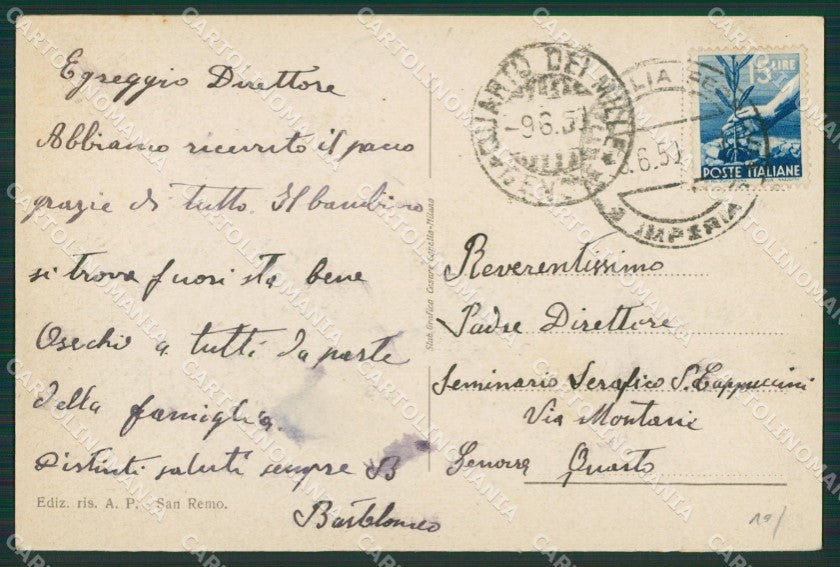 Egreggio Direttore
Abbiamo ricevuto il pacco
grazie di tutto. Il bambino
si trova fuori sta bene
a tutti da parte
della famiglia.
Distinti saluti sempre B
Bartolomeo
Ediz. ris. A. P. - San Remo.
Stab. Grafico Cesare Capello - Milano
QUARTO DEI MILLE
-9.6.51
.6.51
IMPERIA
15 LIRE
POSTE ITALIANE
Reverentissimo
Padre Direttore
Seminario Serafico S. Cappuccini
Via Montani
Genova Quarto
CARTOLINOMANIA